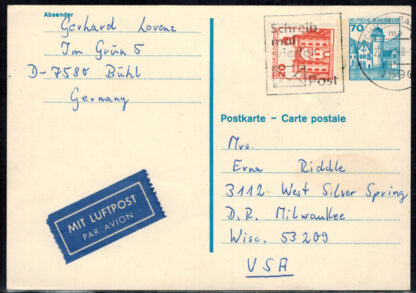 Absender
Gerhard Lorenz
Im Grün 5
D-7580 Bühl
Germany
Schreib
mal
wieder
Post
20
DEUTSCHE BUNDESPOST
70
Postkarte - Carte postale
Mrs.
Erna Riddle
3112 West Silver Spring
D.R. Milwaukee
Wisc. 53209
USA
MIT LUFTPOST
PAR AVION